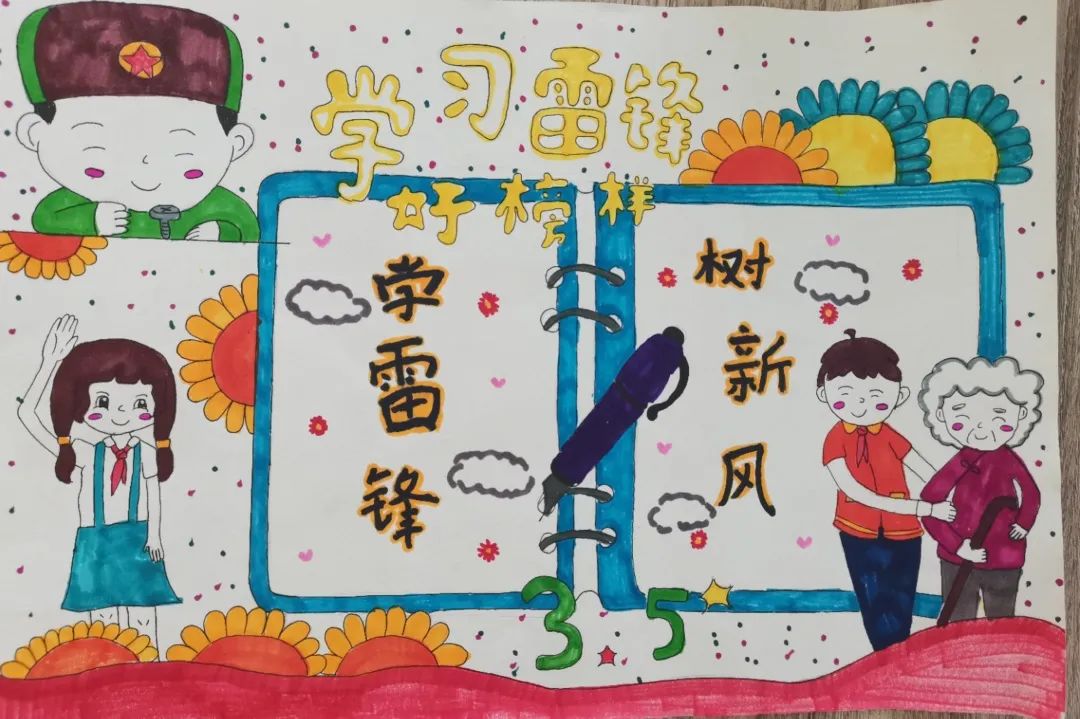 学习雷锋
好榜样
学雷锋
树新风
3.5